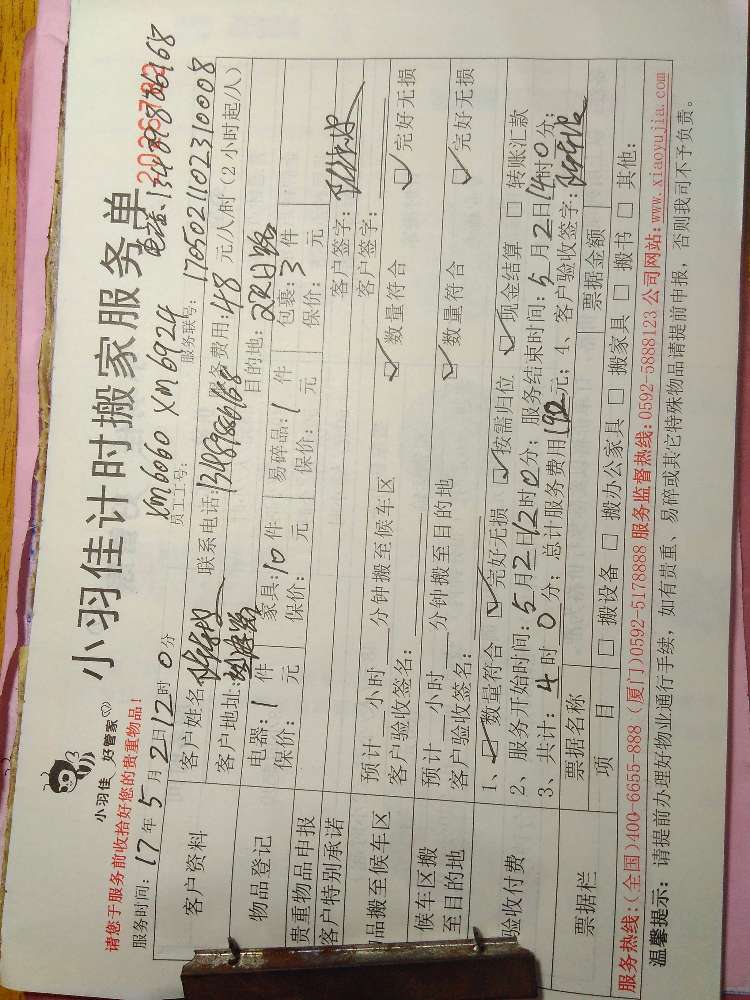 小羽佳 好管家
小羽佳计时搬家服务单
电话:
请您于服务前收拾好您的贵重物品!
服务时间: 17年5月2日12时0分 员工工号: XM6060 XM6924 服务账号: 170502110231008
客户资料
客户姓名 联系电话: 服务费用: 48元/人/时(2小时起/人)
客户地址: 目的地:
物品登记
电器: 1件 家具: 10件 易碎品: 1件 包裹: 3件
保价: 元 保价: 元 保价: 元 保价: 元
贵重物品申报
客户特别承诺 客户签字:
物品搬至候车区
预计 小时 分钟搬至候车区 客户签字:
客户验收签名: ✓数量符合 ✓完好无损
候车区搬至目的地
预计 小时 分钟搬至目的地
客户验收签名: ✓数量符合 ✓完好无损
验收付费
1、✓数量符合 ✓完好无损 ✓按需归位 ✓现金结算 □转账汇款
2、服务开始时间: 5月2日12时0分; 服务结束时间: 5月2日14时0分;
3、共计: 4时0分; 总计服务费用192元; 4、客户验收签字:
票据栏
票据名称 票据金额
项目 □搬设备 □搬办公家具 □搬家具 □搬书 □其他:
服务热线:(全国)400-6655-888 (厦门)0592-5178888 服务监督热线: 0592-5888123 公司网站: www.xiaoyujia.com
温馨提示: 请提前办理好物业通行手续, 如有贵重、易碎或其它特殊物品请提前申报, 否则我司不予负责。